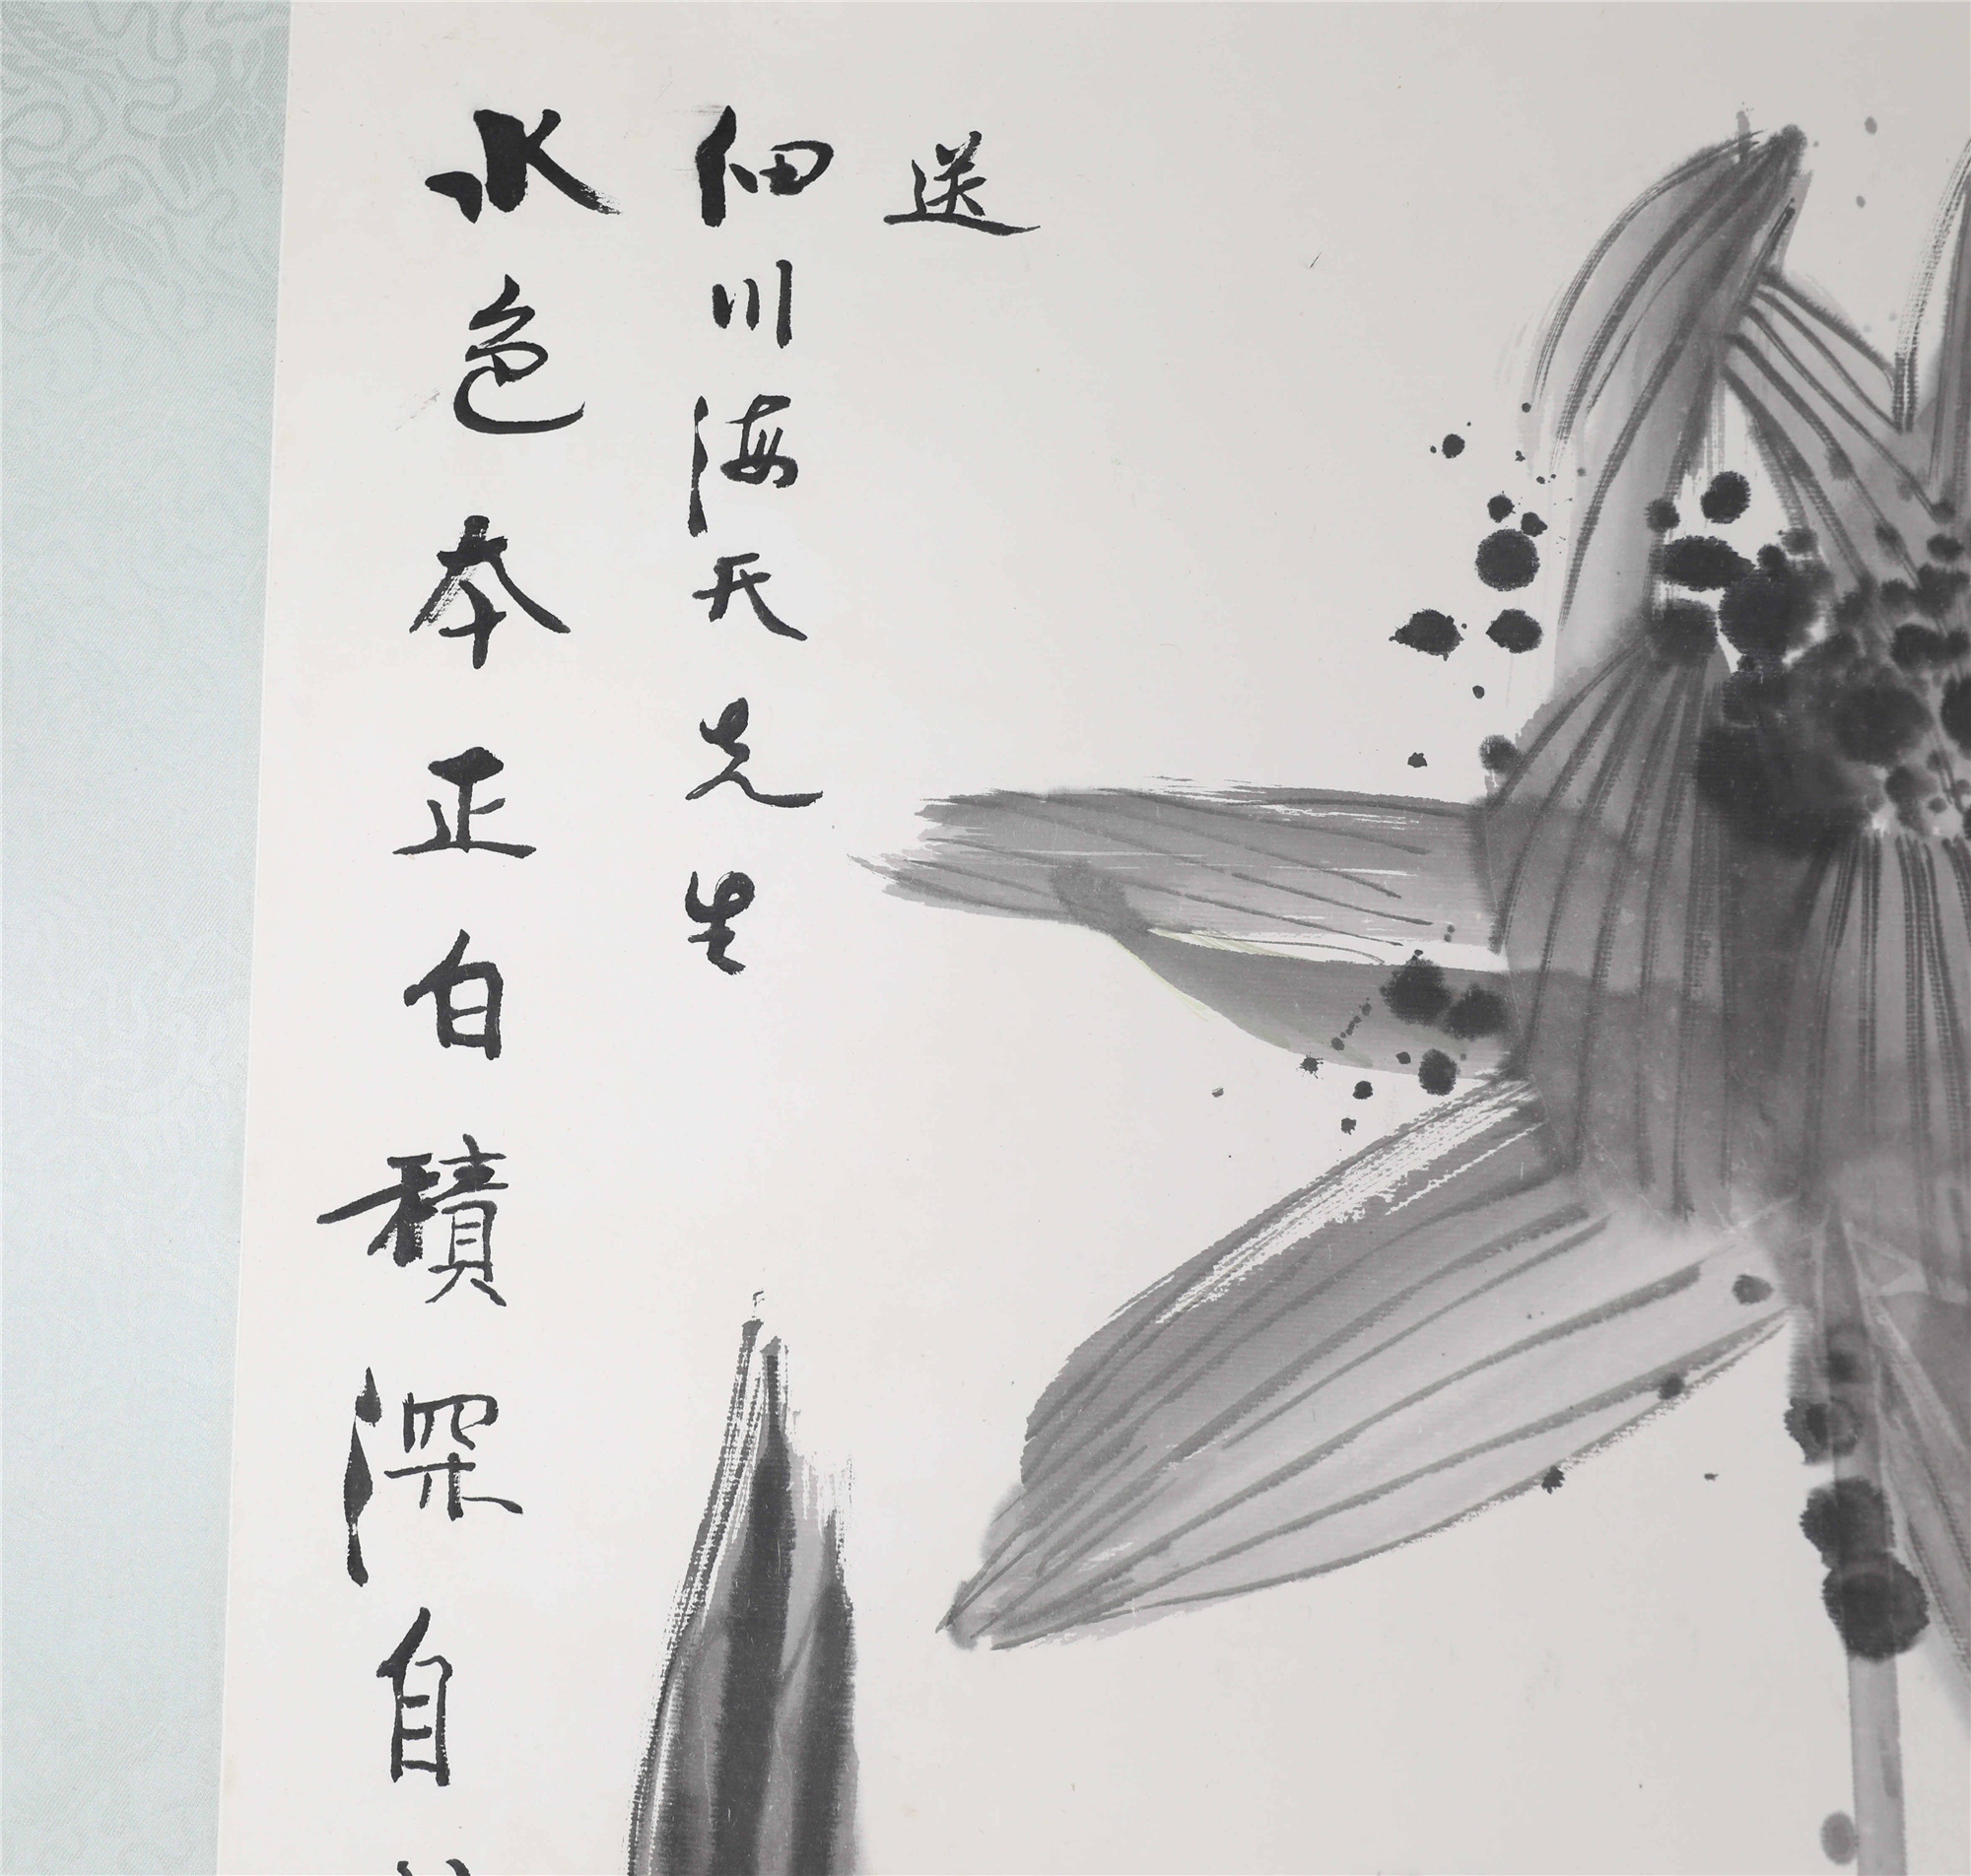 送
細川海天先生
水色本正白積深自